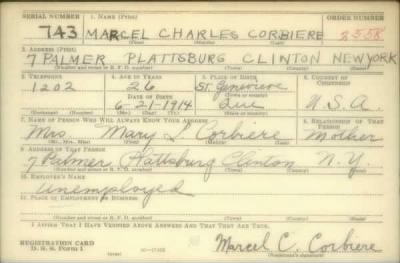 SERIAL NUMBER 1. NAME (Print) ORDER NUMBER
743 MARCEL CHARLES CORBIERE 2558
(First) (Middle) (Last)
2. ADDRESS (Print)
7 PALMER PLATTSBURG CLINTON NEW YORK
(Number and street or R. F. D. number) (Town) (County) (State)
3. TELEPHONE 4. AGE IN YEARS 5. PLACE OF BIRTH 6. COUNTRY OF CITIZENSHIP
1202 26 St. Genevieve
DATE OF BIRTH
6-21-1914 Que U.S.A.
7. NAME OF PERSON WHO WILL ALWAYS KNOW YOUR ADDRESS 8. RELATIONSHIP OF THAT PERSON
Mrs. Mary L Corbiere Mother
(Mr., Mrs., Miss) (First) (Middle) (Last)
9. ADDRESS OF THAT PERSON
7 Palmer Plattsburg Clinton N.Y.
(Number and street or R. F. D. number) (Town) (County) (State)
10. EMPLOYER'S NAME
unemployed
11. PLACE OF EMPLOYMENT OR BUSINESS
(Number and street or R. F. D. number) (Town) (County) (State)
I AFFIRM THAT I HAVE VERIFIED ABOVE ANSWERS AND THAT THEY ARE TRUE.
REGISTRATION CARD
D. S. S. Form 1
Marcel C. Corbiere
(Registrant's signature)